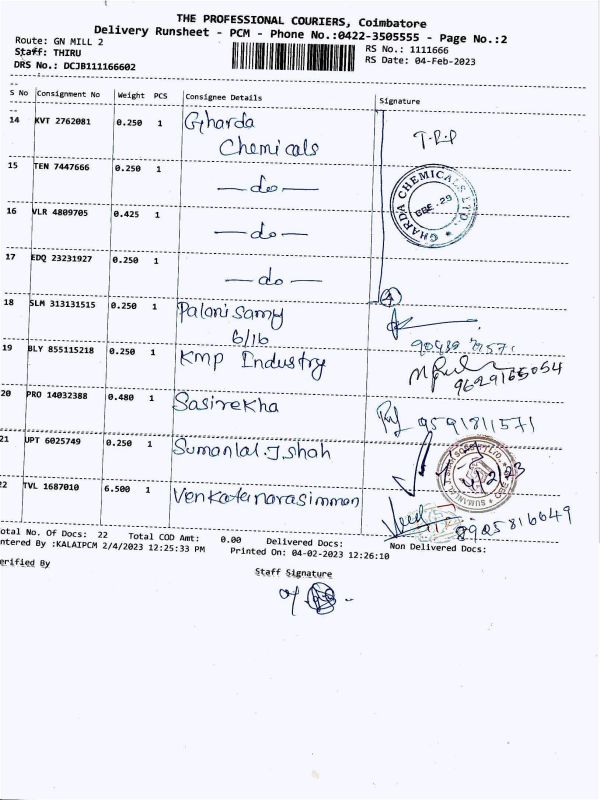 THE PROFESSIONAL COURIERS, Coimbatore
Delivery Runsheet - PCM - Phone No.:0422-3505555 - Page No.:2
Route: GN MILL 2
RS No.: 1111666
Staff: THIRU
RS Date: 04-Feb-2023
DRS No.: DCJB111166602
S No Consignment No Weight PCS Consignee Details Signature
14 KVT 2762081 0.250 1 Gharda
Chemicals
T.R.P
15 TEN 7447666 0.250 1 — do —
GHARDA CHEMICALS LTD.
16 VLR 4809705 0.425 1 — do —
17 EDQ 23231927 0.250 1 — do —
4
18 SLM 313131515 0.250 1 Palanisamy
6/16
19 BLY 855115218 0.250 1 Kmp Industry
9629165054
20 PRO 14032388 0.480 1 Sasirekha
9591811571
21 UPT 6025749 0.250 1 Sumanlal.J shah
22 TVL 1687010 6.500 1 Venkatanarasimman
8925816649
Total No. Of Docs: 22 Total COD Amt: 0.00 Delivered Docs: Non Delivered Docs:
ntered By :KALAIPCM 2/4/2023 12:25:33 PM Printed On: 04-02-2023 12:26:10
erified By
Staff Signature